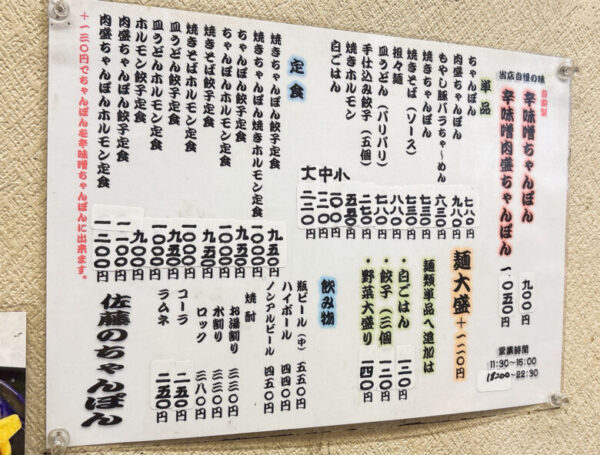 出店自慢の味
自家製
辛味噌ちゃんぽん 九〇〇円
辛味噌肉盛ちゃんぽん 一、〇五〇円
営業時間
11:30~15:00
18:00~22:30
単品
ちゃんぽん 七八〇円
肉盛ちゃんぽん 九八〇円
もやし豚バラちゃ~めん 六三〇円
焼きちゃんぽん 七三〇円
焼きそば(ソース)
担々麺
皿うどん(バリバリ) 七八〇円
手仕込み餃子(五個) 二七〇円
焼きホルモン 五五〇円
白ごはん
小 一〇〇円
中
大
麺大盛+一二〇円
麺類単品へ追加は
・白ごはん 一二〇円
・餃子(三個) 一二〇円
・野菜大盛り 一四〇円
定食
焼きちゃんぽん餃子定食 九五〇円
焼きちゃんぽん焼きホルモン定食 一〇〇〇円
ちゃんぽん餃子定食 九五〇円
ちゃんぽんホルモン定食 一〇〇〇円
焼きそば餃子定食 九五〇円
焼きそばホルモン定食 一〇〇〇円
皿うどん餃子定食 九五〇円
皿うどんホルモン定食 一〇〇〇円
ホルモン餃子定食 九〇〇円
肉盛ちゃんぽん餃子定食 一一〇〇円
肉盛ちゃんぽんホルモン定食 一二〇〇円
+一三〇円でちゃんぽんを辛味噌ちゃんぽんに出来ます。
飲み物
瓶ビール(中) 五五〇円
ハイボール 四四〇円
ノンアルビール 四五〇円
焼酎
お湯割り 三三〇円
水割り 三三〇円
ロック 三八〇円
コーラ 二五〇円
ラムネ 二五〇円
佐藤のちゃんぽん